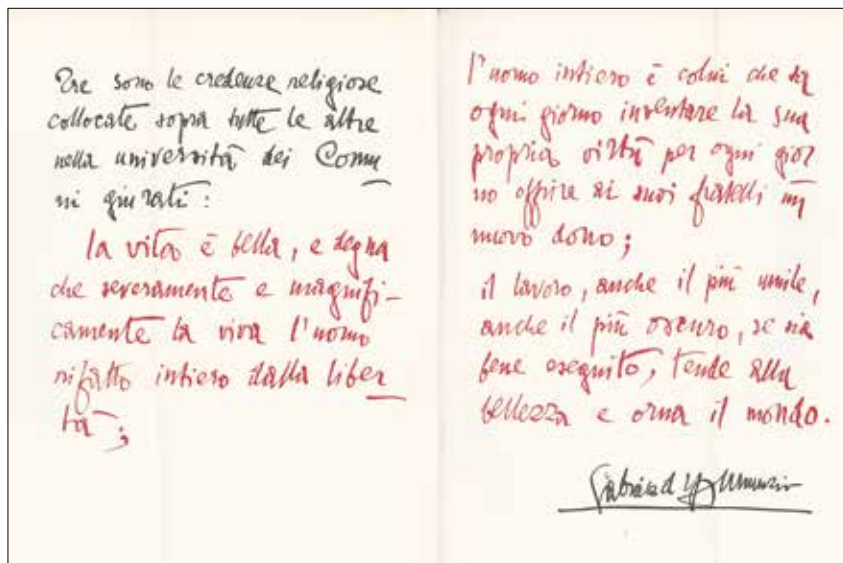 Tre sono le credenze religiose
collocate sopra tutte le altre
nella università dei Comu
ni giurati:
la vita è bella, e degna
che severamente e magnifi-
camente la viva l'uomo
rifatto intiero dalla liber
tà;
l'uomo intiero è colui che sa
ogni giorno inventare la sua
propria virtù per ogni gior
no offrire ai suoi fratelli un
nuovo dono;
il lavoro, anche il più umile,
anche il più oscuro, se sia
bene eseguito, tende alla
bellezza e orna il mondo.
Gabriele d'Annunzio